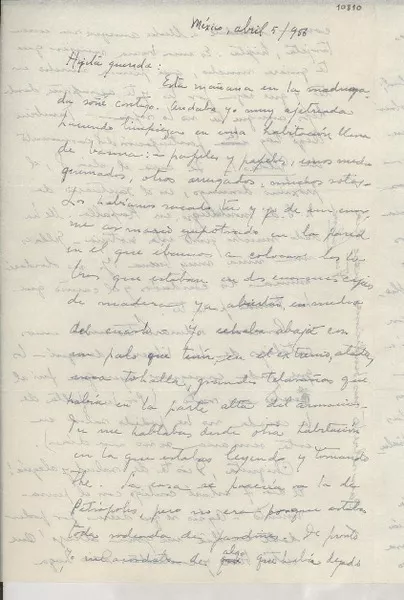 10810
México, abril 5/956
Hijita querida:
Esta mañana en la madruga-
da soñé contigo. Andaba yo muy ajetreada
haciendo limpieza en una habitación llena
de basura: papeles y papeles, unos medio
quemados, otros arrugados, muchos rotos.
Los habíamos sacado tú y yo de un enor-
me armario empotrado en la pared
en el que íbamos a colocar los li-
bros que estaban en dos enormes cajas
de madera ya abiertas, en medio
del cuarto. Yo echaba abajo con
un palo que tenía en el extremo, atada,
una tohalla, grandes telarañas que
había en la parte alta del armario.
Tú me hablabas desde otra habitación
en la que estabas leyendo y tomando
té. La casa se parecía a la de
Petrópolis, pero no era, porque estaba
toda rodeada de jardines. De pronto
yo me acordaba de algo que había dejado